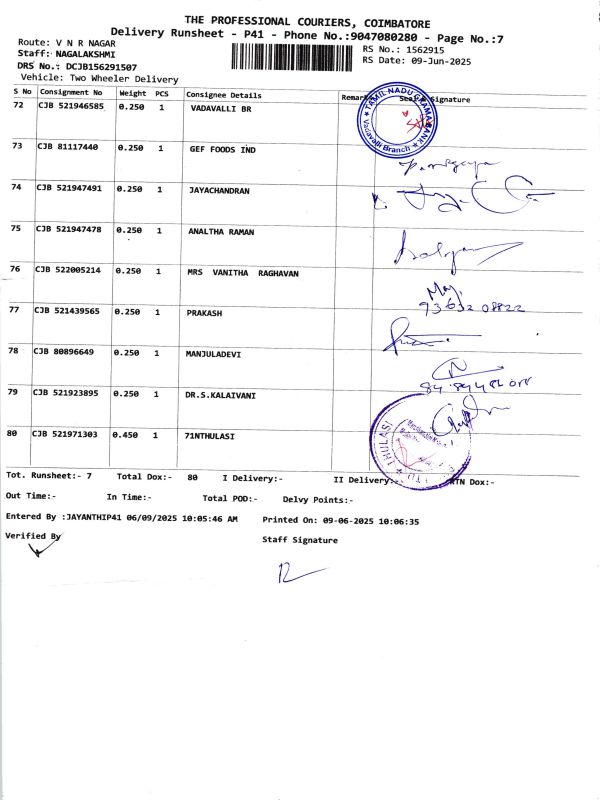 THE PROFESSIONAL COURIERS, COIMBATORE
Delivery Runsheet - P41 - Phone No.:9047080280 - Page No.:7
Route: V N R NAGAR
Staff: NAGALAKSHMI
DRS No.: DCJB156291507
Vehicle: Two Wheeler Delivery
RS No.: 1562915
RS Date: 09-Jun-2025
S No Consignment No Weight PCS Consignee Details Remar Signature
72 CJB 521946585 0.250 1 VADAVALLI BR
TAMIL NADU GRAMA BANK
Vadavalli Branch
73 CJB 81117440 0.250 1 GEF FOODS IND
74 CJB 521947491 0.250 1 JAYACHANDRAN
75 CJB 521947478 0.250 1 ANALTHA RAMAN
76 CJB 522005214 0.250 1 MRS VANITHA RAGHAVAN
77 CJB 521439565 0.250 1 PRAKASH
78 CJB 80896649 0.250 1 MANJULADEVI
79 CJB 521923895 0.250 1 DR.S.KALAIVANI
80 CJB 521971303 0.450 1 71NTHULASI
THULASI
Tot. Runsheet:- 7 Total Dox:- 80 I Delivery:- II Delivery:- RTN Dox:-
Out Time:- In Time:- Total POD:- Delvy Points:-
Entered By :JAYANTHIP41 06/09/2025 10:05:46 AM Printed On: 09-06-2025 10:06:35
Verified By
Staff Signature